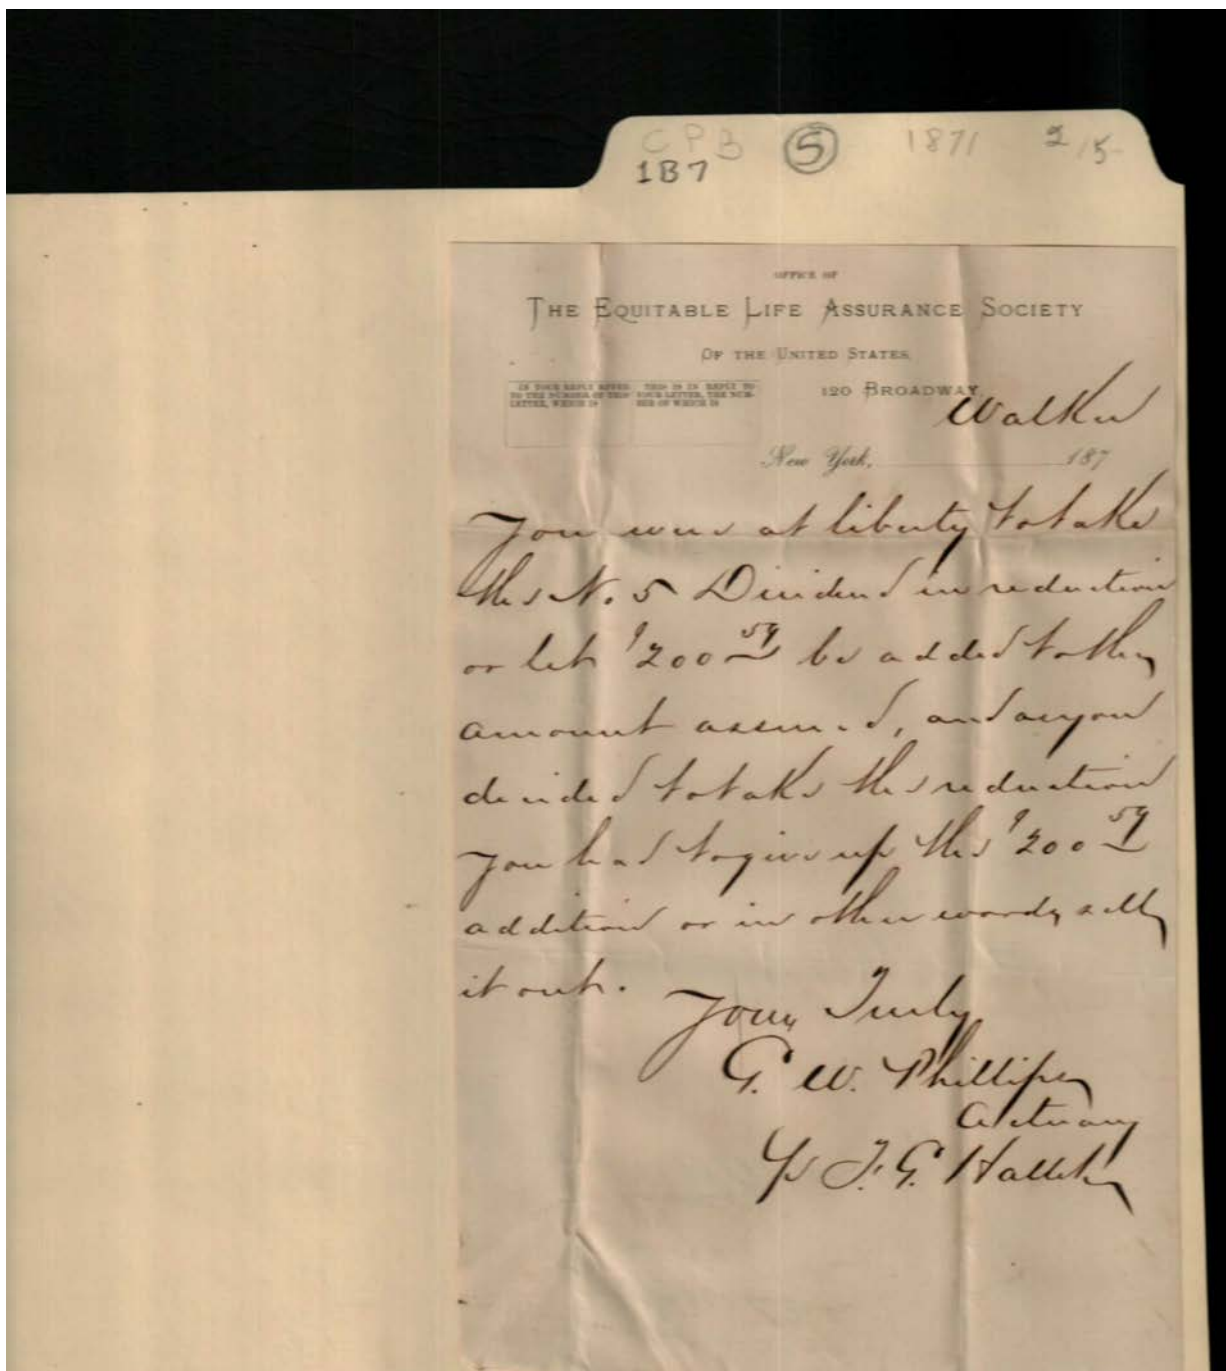 CPB ⑤ 1871 2/5
1B7
OFFICE OF
THE EQUITABLE LIFE ASSURANCE SOCIETY
OF THE UNITED STATES,
IN YOUR REPLY REFER TO THE NUMBER OF THIS LETTER, WHICH IS
THIS IS IN REPLY TO YOUR LETTER, THE NUMBER OF WHICH IS
120 BROADWAY
Walker
New York, 187
You were at liberty to take
the No. 5 Dividend in reduction
or let $200 59 be added to the
amount assured, and as you
decided to take the reduction
you had to give up the $200 59
addition or in other words sell
it out.
Yours Truly
G. W. Phillips
Actuary
J. G.